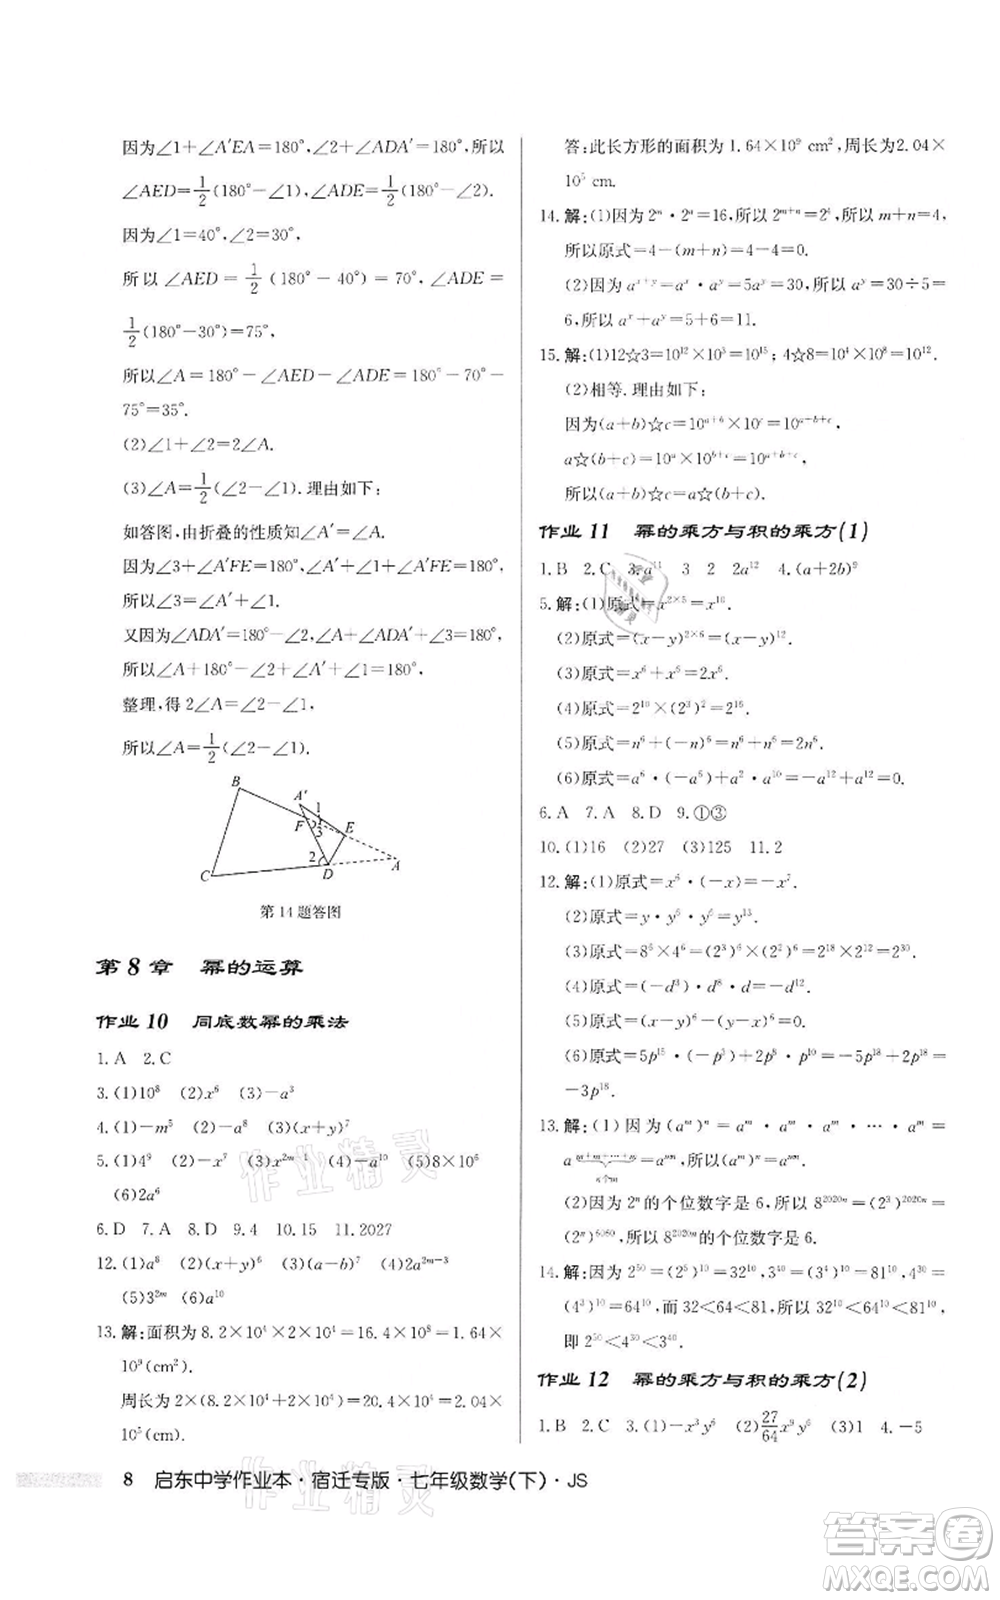 因为∠1+∠A′EA=180°,∠2+∠ADA′=180°,所以
∠AED=1/2(180°-∠1),∠ADE=1/2(180°-∠2).
因为∠1=40°,∠2=30°,
所以∠AED=1/2(180°-40°)=70°,∠ADE=
1/2(180°-30°)=75°,
所以∠A=180°-∠AED-∠ADE=180°-70°-
75°=35°.
(2)∠1+∠2=2∠A.
(3)∠A=1/2(∠2-∠1).理由如下:
如答图,由折叠的性质知∠A′=∠A.
因为∠3+∠A′FE=180°,∠A′+∠1+∠A′FE=180°,
所以∠3=∠A′+∠1.
又因为∠ADA′=180°-∠2,∠A+∠ADA′+∠3=180°,
所以∠A+180°-∠2+∠A′+∠1=180°.
整理,得2∠A=∠2-∠1,
所以∠A=1/2(∠2-∠1).
B A′ 1 F 3 E 2 C D A
第14题答图
第8章 幂的运算
作业10 同底数幂的乘法
1.A 2.C
3.(1)10⁸ (2)x⁶ (3)-a³
4.(1)-m⁵ (2)-a⁸ (3)(x+y)⁷
5.(1)4⁹ (2)-x⁷ (3)x²ᵐ⁻¹ (4)-a¹⁰ (5)8×10⁶
(6)2a⁶
6.D 7.A 8.D 9.4 10.15 11.2027
12.(1)a⁸ (2)(x+y)⁶ (3)(x-y)⁶ (4)a²ᵐ⁻³
(5)3²ᵐ (6)a¹⁰
13.解:面积为8.2×10⁴×2×10⁴=16.4×10⁸=1.64×
10⁹(cm²).
周长为2×(8.2×10⁴+2×10⁴)=20.4×10⁴=2.04×
10⁵(cm).
答:此长方形的面积为1.64×10⁹ cm²,周长为2.04×
10⁵ cm.
14.解:(1)因为2ᵐ·2ⁿ=16,所以2ᵐ⁺ⁿ=2⁴,所以m+n=4,
所以原式=4-(m+n)=4-4=0.
(2)因为aˣ⁺ʸ=aˣ·aʸ=5aʸ=30,所以aʸ=30÷5=
6,所以aˣ+aʸ=5+6=11.
15.解:(1)12☆3=10¹²×10³=10¹⁵;4☆8=10⁴×10⁸=10¹².
(2)相等.理由如下:
因为(a+b)☆c=10ᵃ⁺ᵇ×10ᶜ=10ᵃ⁺ᵇ⁺ᶜ,
a☆(b+c)=10ᵃ×10ᵇ⁺ᶜ=10ᵃ⁺ᵇ⁺ᶜ,
所以(a+b)☆c=a☆(b+c).
作业11 幂的乘方与积的乘方(1)
1.B 2.C 3.a¹¹ 3 2 2a¹² 4.(a+2b)⁹
5.解:(1)原式=x²ˣ⁵=x¹⁰.
(2)原式=(x-y)²ˣ⁶=(x-y)¹².
(3)原式=x⁶+x⁶=2x⁶.
(4)原式=2¹⁰×(2³)²=2¹⁶.
(5)原式=n⁶+(-n³)²=n⁶+n⁶=2n⁶.
(6)原式=a⁶·(-a⁶)+a²·a¹⁰=-a¹²+a¹²=0.
6.A 7.A 8.D 9.①③
10.(1)16 (2)27 (3)125 11.2
12.解:(1)原式=x⁶·(-x)=-x⁷.
(2)原式=y·y⁶·y⁶=y¹³.
(3)原式=8⁶×4⁶=(2³)⁶×(2²)⁶=2¹⁸×2¹²=2³⁰.
(4)原式=(-d³)·d⁸·(-d)=d¹².
(5)原式=-a³·a¹⁰·(-a⁵)=a¹⁸.
(6)原式=5p¹⁵·(-p³)+2p¹⁸=-5p¹⁸+2p¹⁸=
-3p¹⁸.
13.解:(1)因为(aᵐ)ⁿ=aᵐ·aᵐ·aᵐ·…·aᵐ=
a^(m+m+…+m)(n个m)=aᵐⁿ,所以(aᵐ)ⁿ=aᵐⁿ.
(2)因为2ⁿ的个位数字是6,所以8²⁰²⁰ⁿ=(2³)²⁰²⁰ⁿ=
(2ⁿ)⁶⁰⁶⁰,所以8²⁰²⁰ⁿ的个位数字是6.
14.解:因为2⁵⁰=(2⁵)¹⁰=32¹⁰,3⁴⁰=(3⁴)¹⁰=81¹⁰,4³⁰=
(4³)¹⁰=64¹⁰,而32<64<81,所以32¹⁰<64¹⁰<81¹⁰,
即2⁵⁰<4³⁰<3⁴⁰.
作业12 幂的乘方与积的乘方(2)
1.B 2.C 3.(1)-x³y⁶ (2)27/64x⁹y⁶ (3)1 4.-5
8 启东中学作业本·宿迁专版·七年级数学(下)·JS
作业精灵
作业精灵
答案圈
MXQE.COM